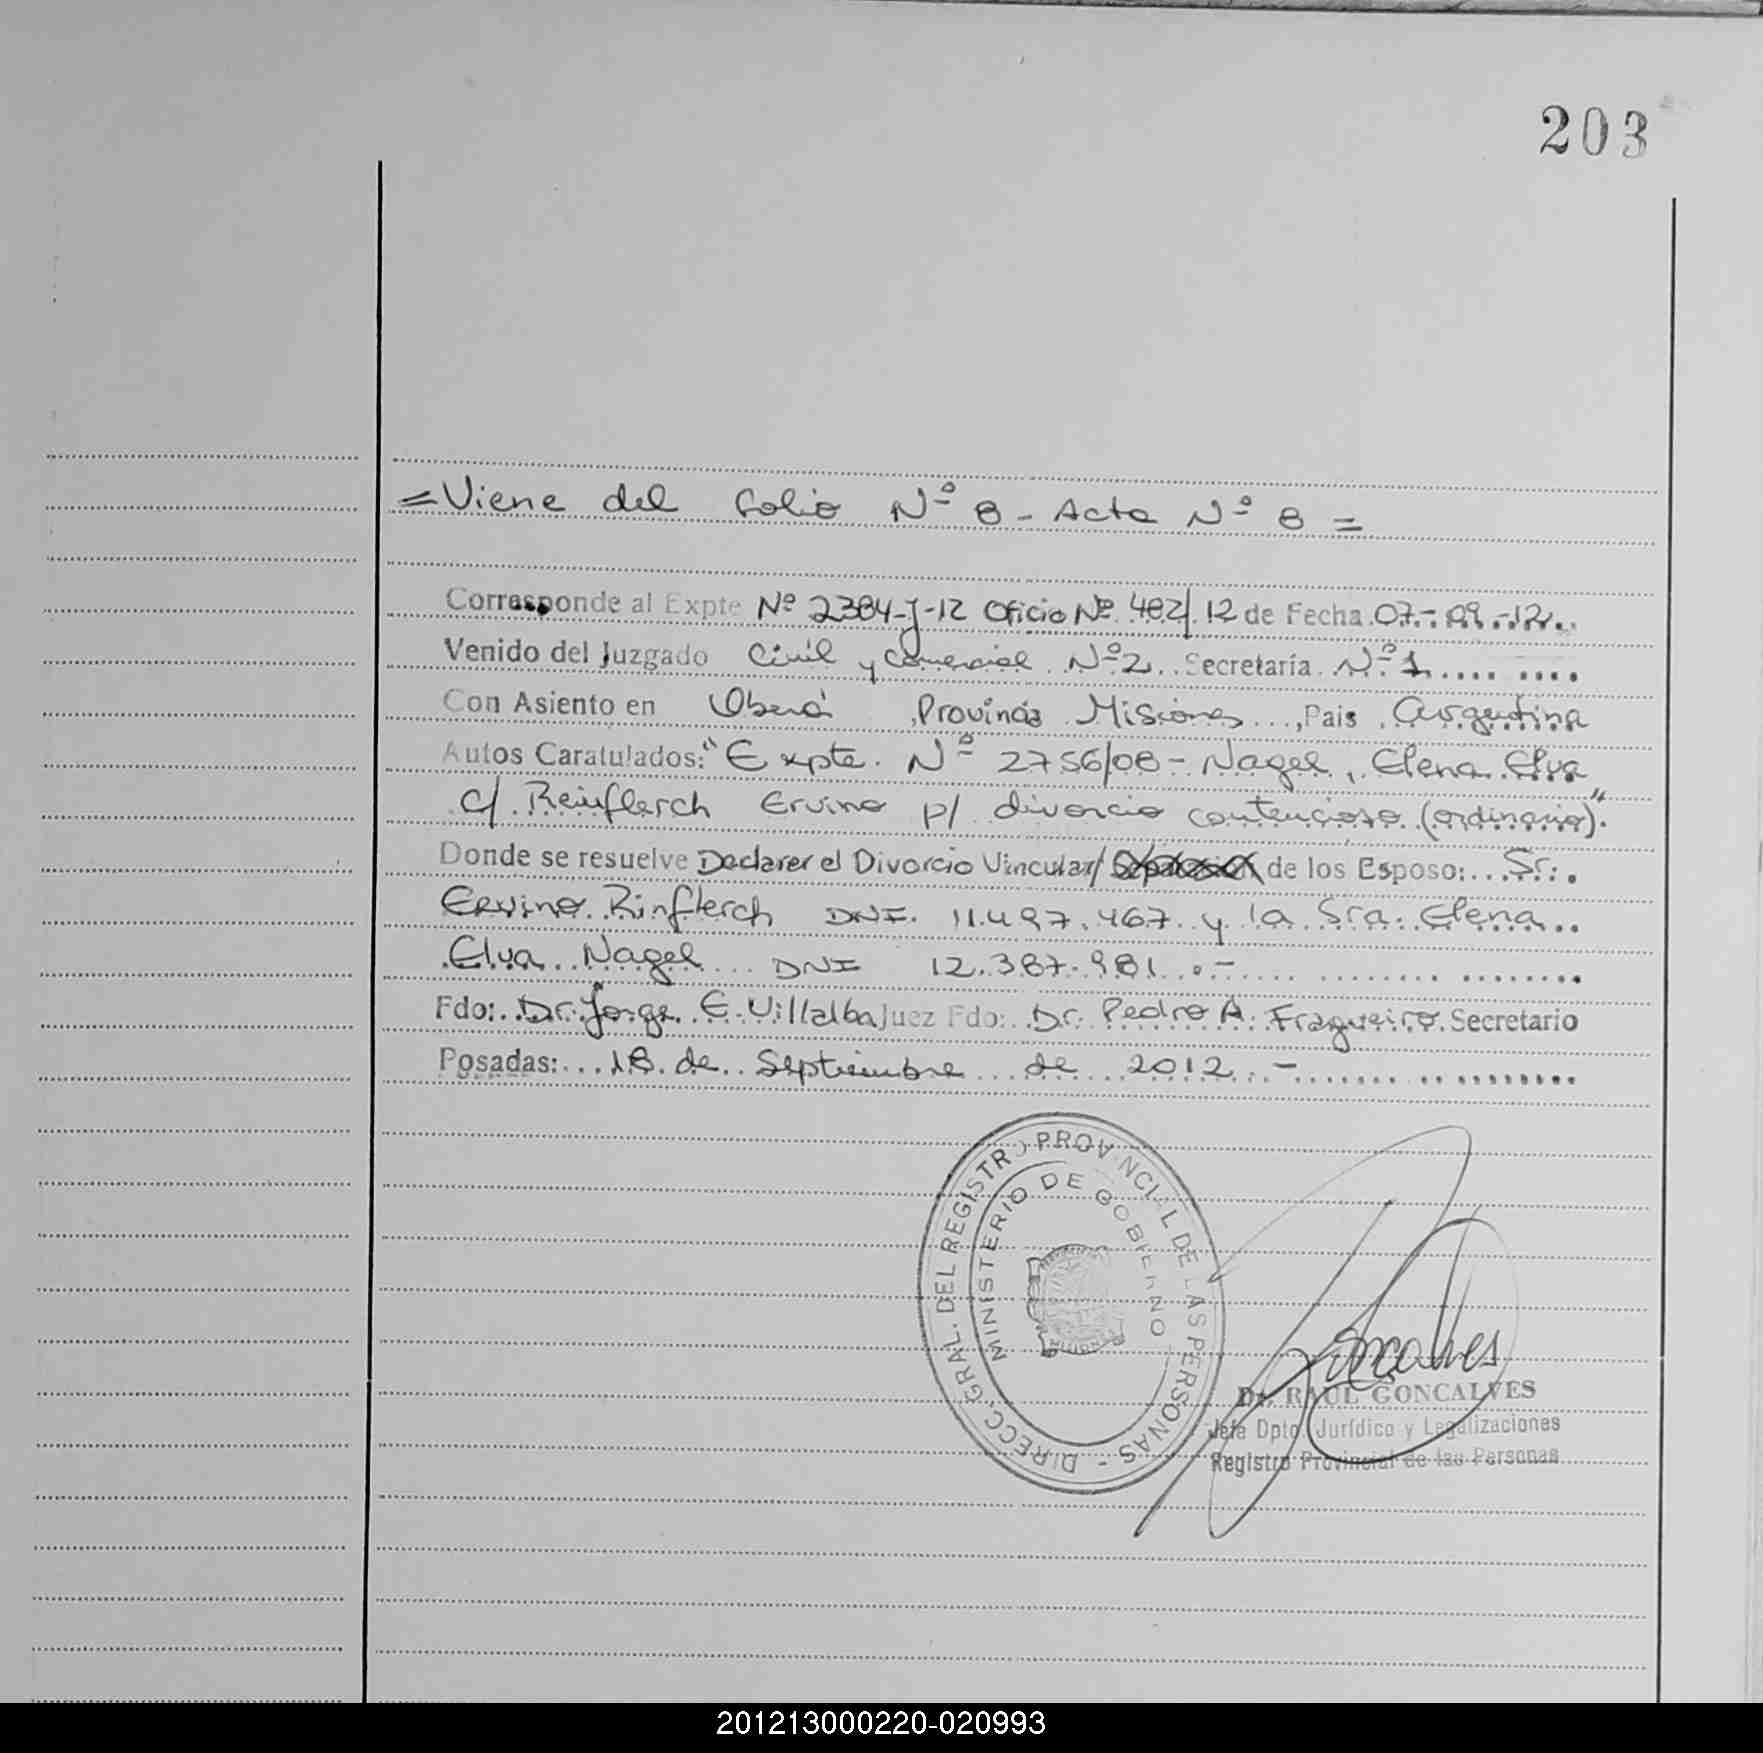 203
=Viene del folio Nº 8 - Acta Nº 8 =
Corresponde al Expte Nº 2384-J-12 Oficio Nº 482/12 de Fecha 07-09-12
Venido del Juzgado Civil y Comercial Nº 2 Secretaría Nº 1
Con Asiento en Oberá, Provincia Misiones, Pais Argentina
Autos Caratulados: "Expte. Nº 2756/08 - Nagel, Elena Elva
c/ Reinflerch Ervino p/ divorcio contencioso (ordinario)".
Donde se resuelve Declarer el Divorcio Vincular/ de los Esposo: Sr.
Ervino Rinflerch DNI. 11.497.467 y la Sra. Elena
Elva Nagel DNI 12.387.981.-
Fdo: Dr. Jorge E. Villalba Juez Fdo: Dr. Pedro A. Fragueiro Secretario
Posadas: 18 de Septiembre de 2012.-
DIRECC. GRAL. DEL REGISTRO PROVINCIAL DE LAS PERSONAS -
MINISTERIO DE GOBIERNO
Goncalves
Dr. RAUL GONCALVES
Jefe Dpto. Jurídico y Legalizaciones
Registro Provincial de las Personas
201213000220-020993